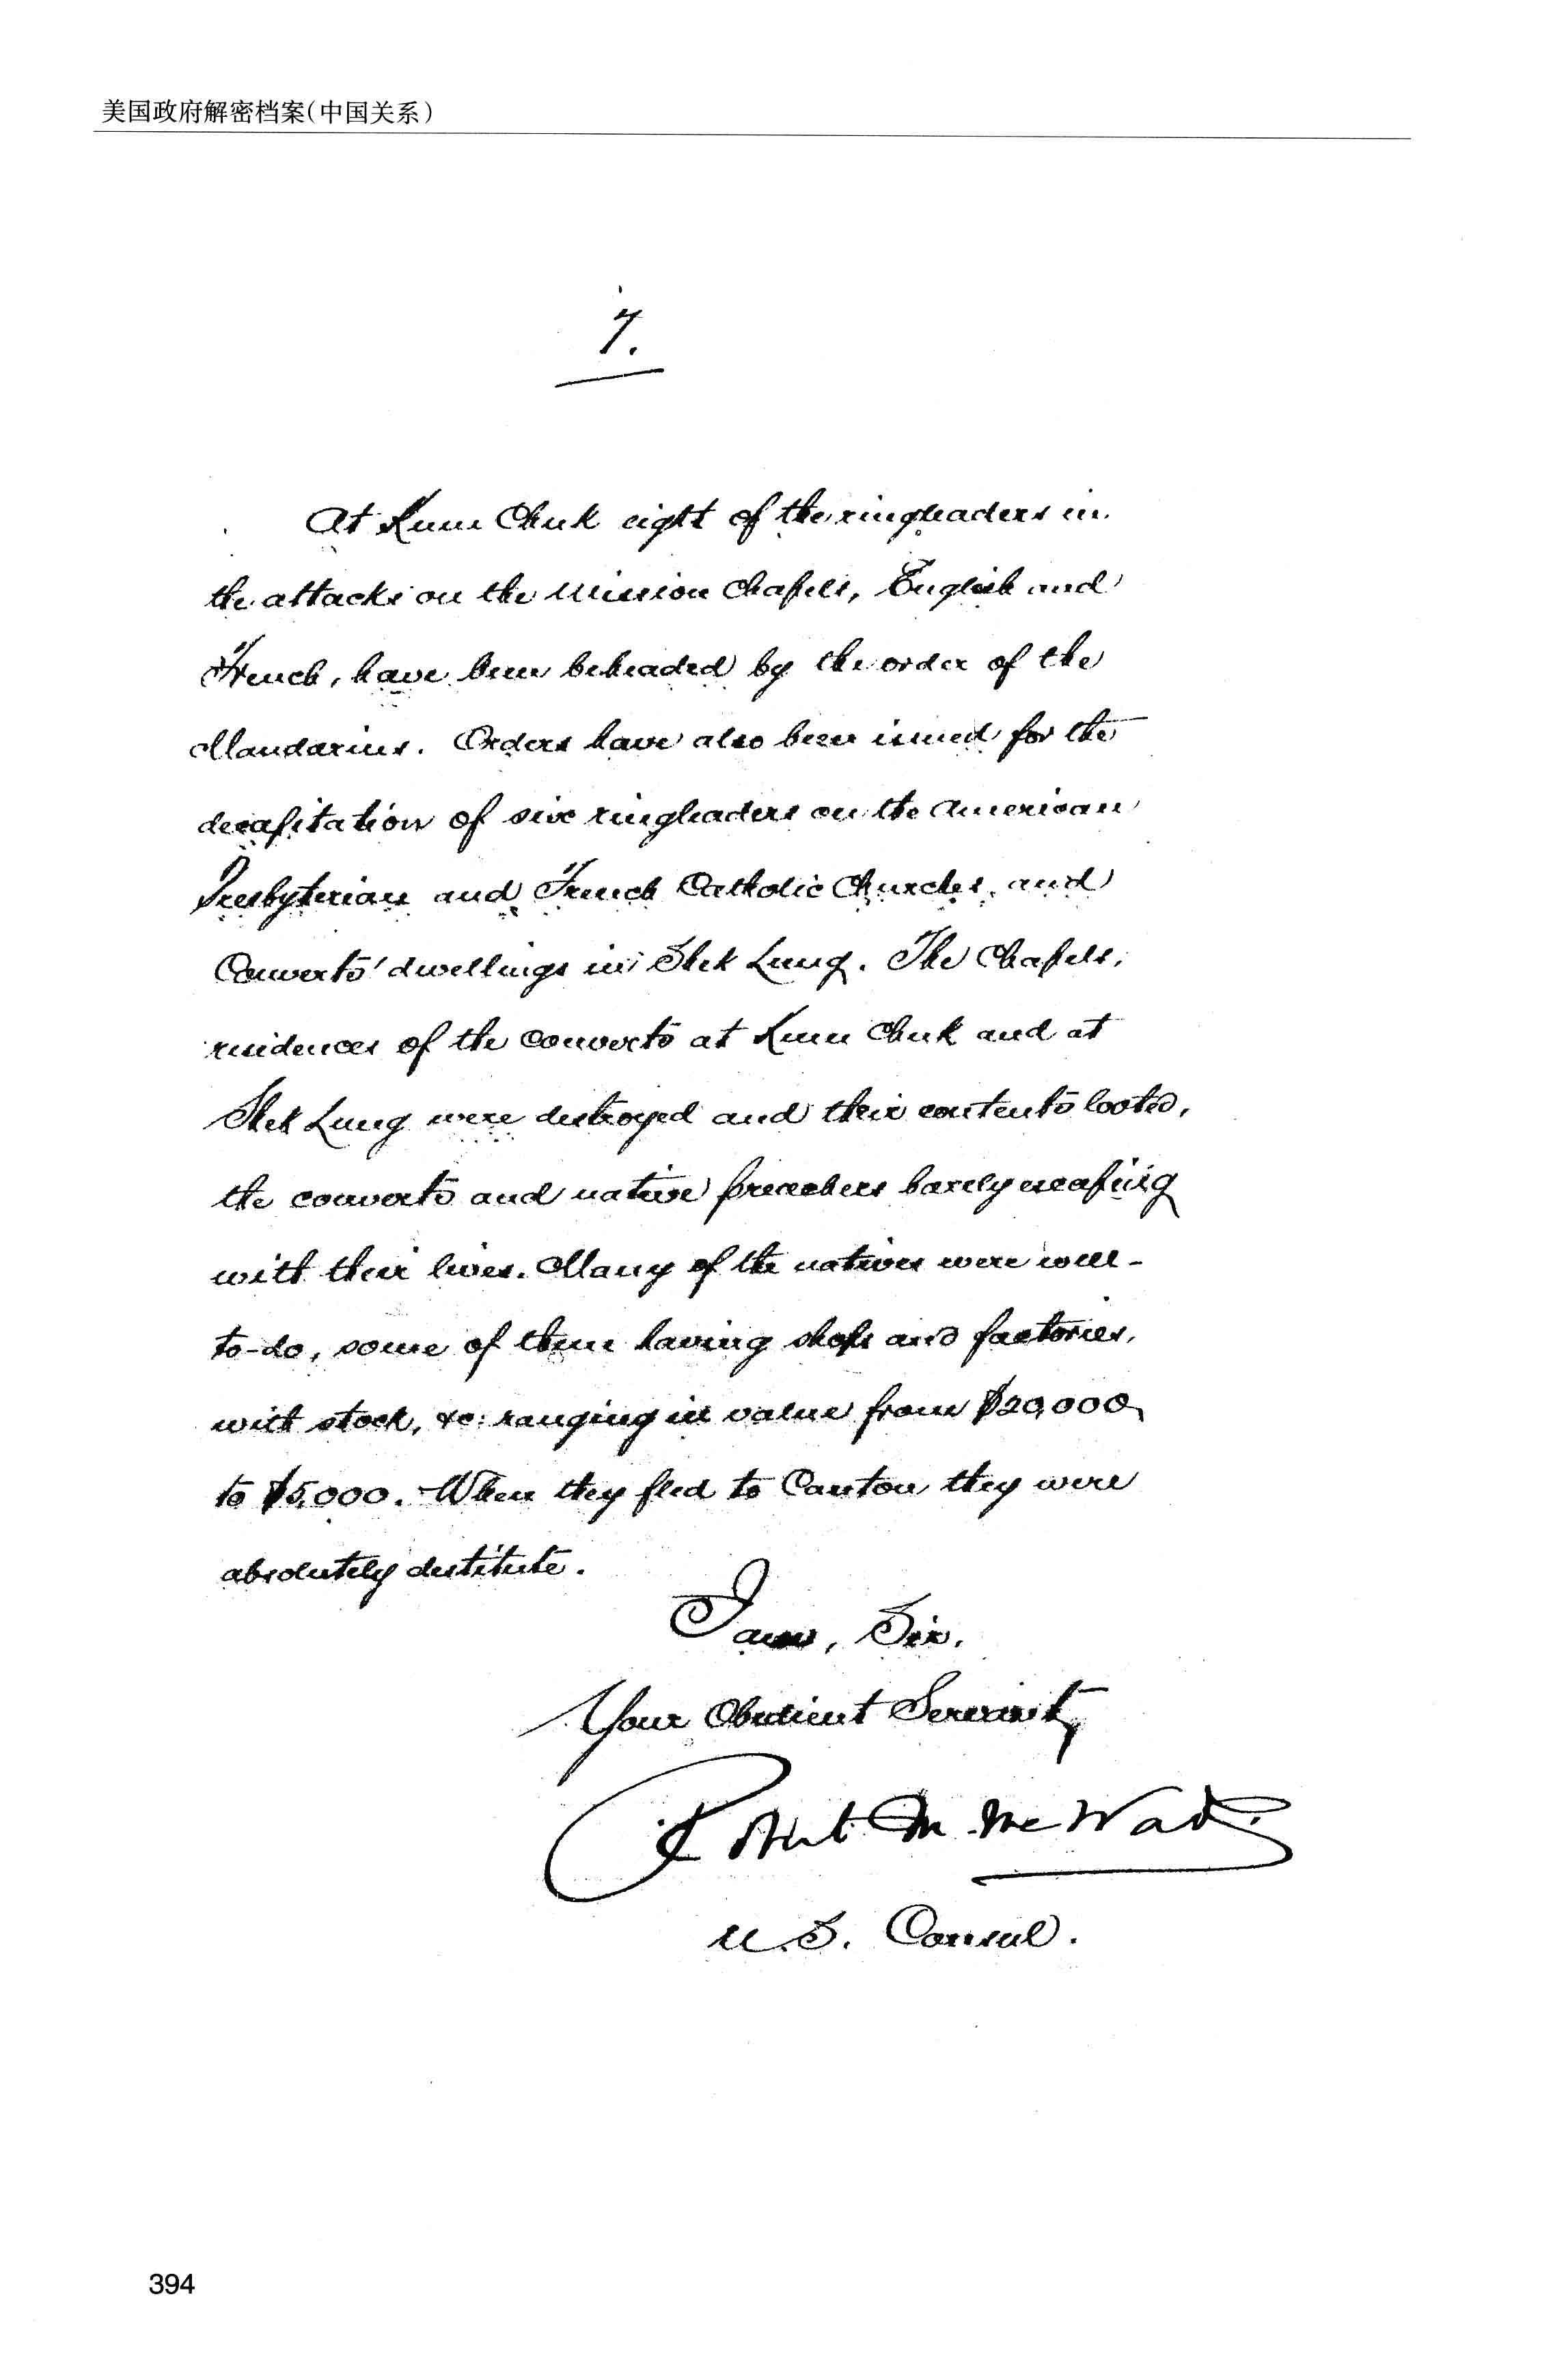 美国政府解密档案(中国关系)
7.
At Kum Chuk eight of the ringleaders in
the attacks on the Mission Chapels, English and
French, have been beheaded by the order of the
Mandarins. Orders have also been issued for the
decapitation of six ringleaders on the American
Presbyterian and French Catholic Churches, and
Converts' dwellings in Shek Lung. The Chapels,
residences of the converts at Kum Chuk and at
Shek Lung were destroyed and their contents looted,
the converts and native preachers barely escaping
with their lives. Many of the natives were well-
to-do, some of them having shops and factories,
with stock, &c: ranging in value from $20,000
to $5,000. When they fled to Canton they were
absolutely destitute.
I am, Sir,
Your Obedient Servant,
Robert M. McWade.
U.S. Consul.
394